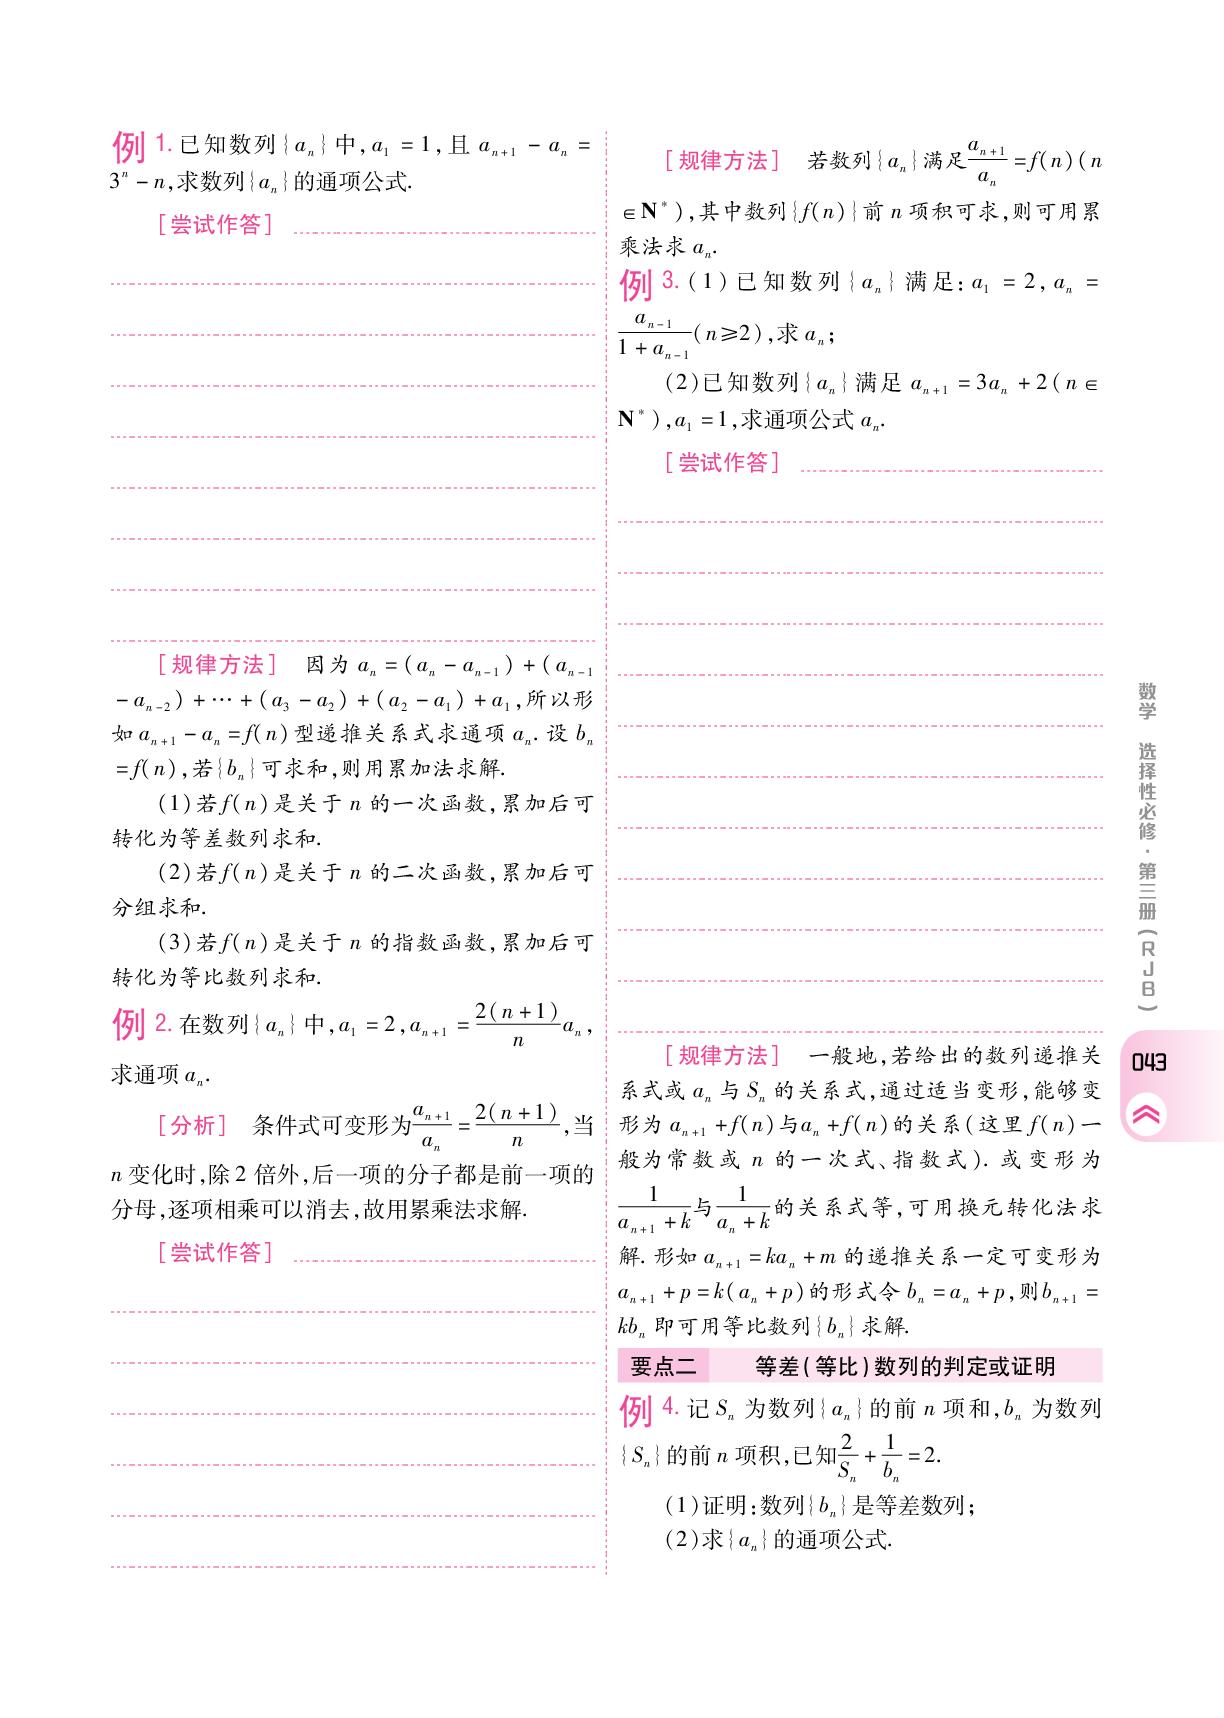 例 1. 已知数列{aₙ}中,a₁ = 1,且 aₙ₊₁ - aₙ =
3ⁿ - n,求数列{aₙ}的通项公式.
[尝试作答]
[规律方法] 因为 aₙ = (aₙ - aₙ₋₁) + (aₙ₋₁
- aₙ₋₂) + … + (a₃ - a₂) + (a₂ - a₁) + a₁,所以形
如 aₙ₊₁ - aₙ = f(n)型递推关系式求通项 aₙ. 设 bₙ
= f(n),若{bₙ}可求和,则用累加法求解.
(1)若 f(n)是关于 n 的一次函数,累加后可
转化为等差数列求和.
(2)若 f(n)是关于 n 的二次函数,累加后可
分组求和.
(3)若 f(n)是关于 n 的指数函数,累加后可
转化为等比数列求和.
例 2. 在数列{aₙ}中,a₁ = 2,aₙ₊₁ = 2(n+1)/n aₙ,
求通项 aₙ.
[分析] 条件式可变形为 aₙ₊₁/aₙ = 2(n+1)/n,当
n 变化时,除 2 倍外,后一项的分子都是前一项的
分母,逐项相乘可以消去,故用累乘法求解.
[尝试作答]
[规律方法] 若数列{aₙ}满足 aₙ₊₁/aₙ = f(n)(n
∈N*),其中数列{f(n)}前 n 项积可求,则可用累
乘法求 aₙ.
例 3. (1)已知数列{aₙ}满足: a₁ = 2, aₙ =
aₙ₋₁/(1 + aₙ₋₁)(n≥2),求 aₙ;
(2)已知数列{aₙ}满足 aₙ₊₁ = 3aₙ + 2(n∈
N*),a₁ = 1,求通项公式 aₙ.
[尝试作答]
[规律方法] 一般地,若给出的数列递推关
系式或 aₙ 与 Sₙ 的关系式,通过适当变形,能够变
形为 aₙ₊₁ + f(n)与aₙ + f(n)的关系(这里 f(n)一
般为常数或 n 的一次式、指数式). 或变形为
1/(aₙ₊₁ + k)与1/(aₙ + k)的关系式等,可用换元转化法求
解. 形如 aₙ₊₁ = kaₙ + m 的递推关系一定可变形为
aₙ₊₁ + p = k(aₙ + p)的形式令 bₙ = aₙ + p,则bₙ₊₁ =
kbₙ 即可用等比数列{bₙ}求解.
要点二 等差(等比)数列的判定或证明
例 4. 记 Sₙ 为数列{aₙ}的前 n 项和,bₙ 为数列
{Sₙ}的前 n 项积,已知 2/Sₙ + 1/bₙ = 2.
(1)证明:数列{bₙ}是等差数列;
(2)求{aₙ}的通项公式.
数学 选择性必修·第三册(RJB)
043